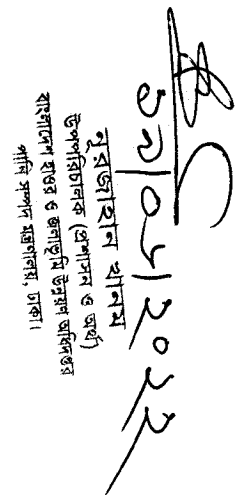 নুরজাহান খানম
উপপরিচালক (প্রশাসন ও অর্থ)
বাংলাদেশ হাওর ও জলাভূমি উন্নয়ন অধিদপ্তর
পানি সম্পদ মন্ত্রণালয়, ঢাকা।